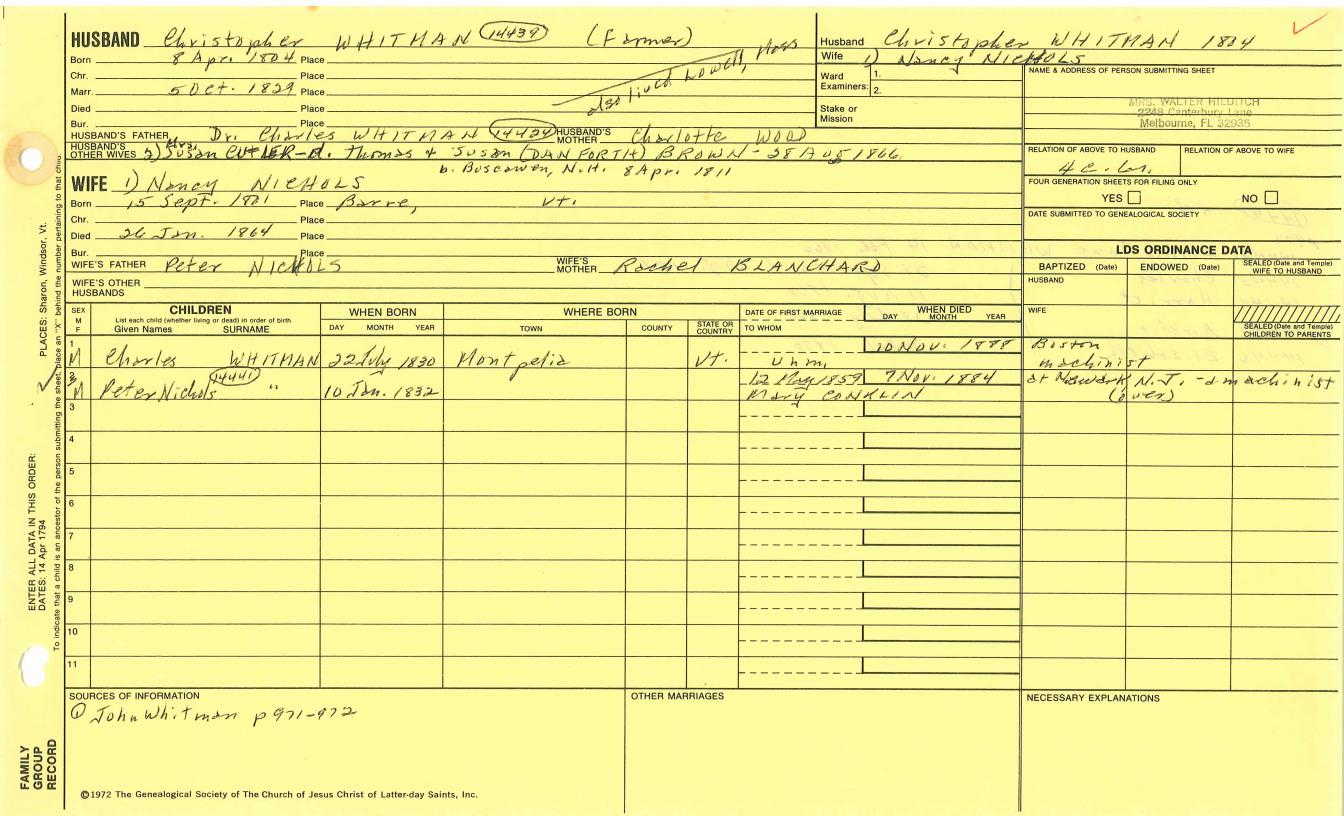 HUSBAND Christopher WHITMAN 14439 (Farmer)
Born 8 Apr. 1804 Place
Chr. Place
Marr. 5 Oct. 1829 Place
also lived Lowell, Mass
Died Place
Bur. Place
HUSBAND'S FATHER Dr. Charles WHITMAN 14434 HUSBAND'S MOTHER Charlotte WOOD
HUSBAND'S OTHER WIVES 2) Mrs. Susan CUTLER-d. Thomas + Susan (DANFORTH) BROWN - 28 Aug 1866
b. Boscawen, N.H. 8 Apr. 1811
WIFE 1) Nancy NICHOLS
Born 15 Sept. 1801 Place Barre, Vt.
Chr. Place
Died 26 Jan. 1864 Place
Bur. Place
WIFE'S FATHER Peter NICHOLS WIFE'S MOTHER Rachel BLANCHARD
WIFE'S OTHER HUSBANDS
Husband Christopher WHITMAN 1804
Wife 1) Nancy NICHOLS
Ward Examiners: 1.
2.
Stake or Mission
NAME & ADDRESS OF PERSON SUBMITTING SHEET
MRS. WALTER HILDITCH
2248 Canterbury Lane
Melbourne, FL 32935
RELATION OF ABOVE TO HUSBAND RELATION OF ABOVE TO WIFE
FOUR GENERATION SHEETS FOR FILING ONLY
YES NO
DATE SUBMITTED TO GENEALOGICAL SOCIETY
LDS ORDINANCE DATA
BAPTIZED (Date) ENDOWED (Date) SEALED (Date and Temple) WIFE TO HUSBAND
HUSBAND
WIFE
SEALED (Date and Temple) CHILDREN TO PARENTS
SEX M F
CHILDREN
List each child (whether living or dead) in order of birth
Given Names SURNAME
WHEN BORN
DAY MONTH YEAR
WHERE BORN
TOWN COUNTY STATE OR COUNTRY
DATE OF FIRST MARRIAGE
TO WHOM
WHEN DIED
DAY MONTH YEAR
1 M Charles WHITMAN 22 July 1830 Montpelia Vt. unm. 10 Nov. 1888 Boston machinist
2 M Peter Nichols 14441 " 10 Jan. 1832 12 May 1859 Mary CONKLIN 7 Nov. 1884 at Newark N.J. - a machinist (over)
3
4
5
6
7
8
9
10
11
SOURCES OF INFORMATION
① John Whitman p 971-972
OTHER MARRIAGES
NECESSARY EXPLANATIONS
©1972 The Genealogical Society of The Church of Jesus Christ of Latter-day Saints, Inc.
FAMILY GROUP RECORD
ENTER ALL DATA IN THIS ORDER:
DATES: 14 Apr 1794
PLACES: Sharon, Windsor, Vt.
To indicate that a child is an ancestor of the person submitting the sheet, place an "X" behind the number pertaining to that child.